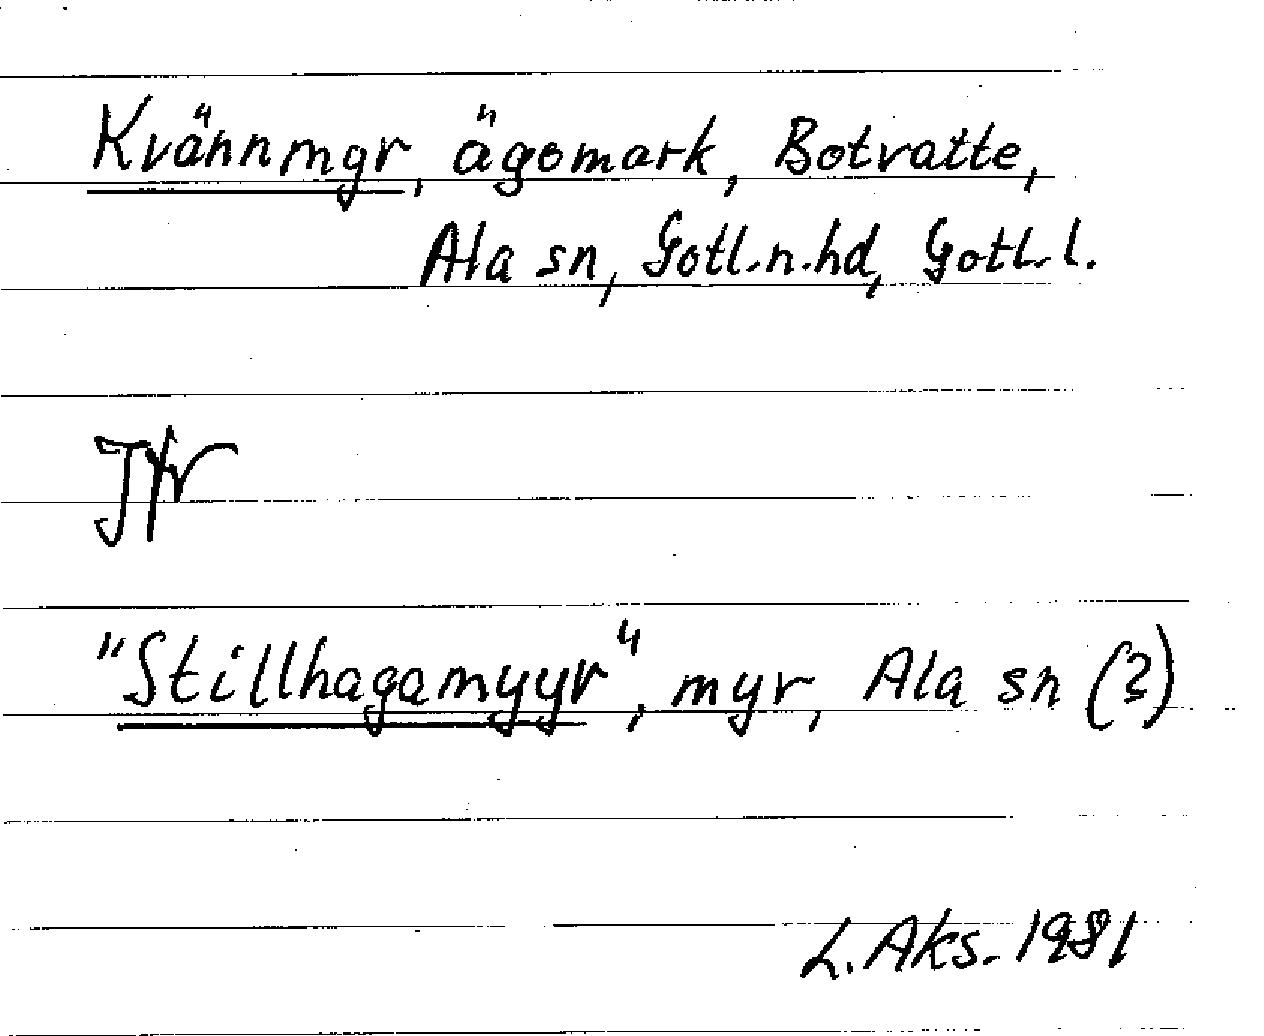 Kvännmyr, ägomark, Botvatte,
Ala sn, Gotl.n.hd, Gotl. l.
Jfr
"Stillhagamyyr", myr, Ala sn (?)
L. Aks. 1981